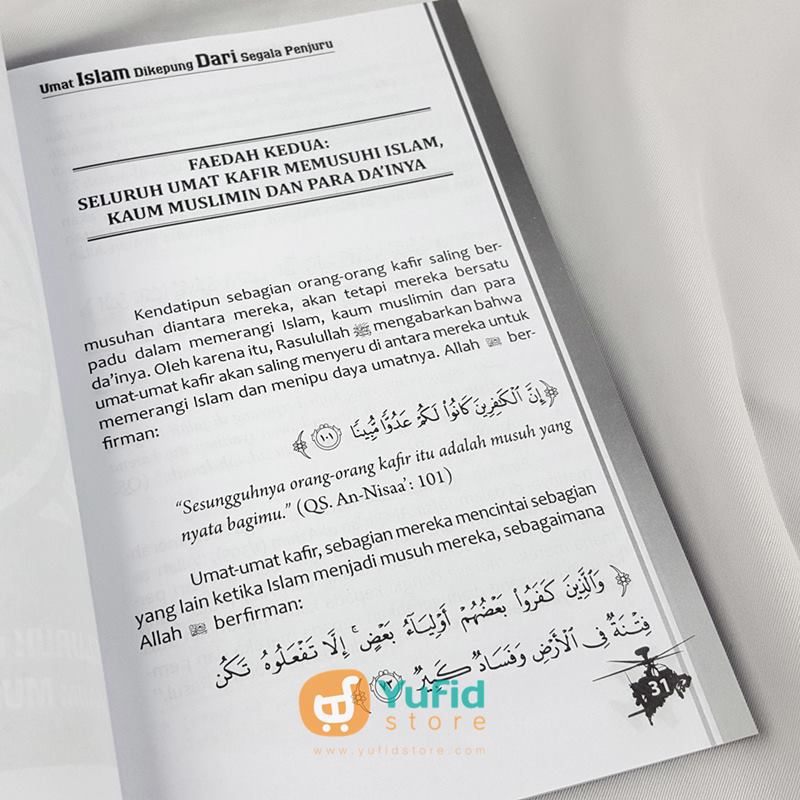 Umat Islam Dikepung Dari Segala Penjuru
FAEDAH KEDUA:
SELURUH UMAT KAFIR MEMUSUHI ISLAM,
KAUM MUSLIMIN DAN PARA DA'INYA
Kendatipun sebagian orang-orang kafir saling ber-
musuhan diantara mereka, akan tetapi mereka bersatu
padu dalam memerangi Islam, kaum muslimin dan para
da'inya. Oleh karena itu, Rasulullah ﷺ mengabarkan bahwa
umat-umat kafir akan saling menyeru di antara mereka untuk
memerangi Islam dan menipu daya umatnya. Allah ber-
firman:
﴿إِنَّ ٱلْكَٰفِرِينَ كَانُوا۟ لَكُمْ عَدُوًّا مُّبِينًا ١٠١﴾
“Sesungguhnya orang-orang kafir itu adalah musuh yang
nyata bagimu.” (QS. An-Nisaa': 101)
Umat-umat kafir, sebagian mereka mencintai sebagian
yang lain ketika Islam menjadi musuh mereka, sebagaimana
Allah berfirman:
﴿وَٱلَّذِينَ كَفَرُوا۟ بَعْضُهُمْ أَوْلِيَآءُ بَعْضٍ ۚ إِلَّا تَفْعَلُوهُ تَكُن
فِتْنَةٌ فِى ٱلْأَرْضِ وَفَسَادٌ كَبِيرٌ
31
YuFid
store
www.yufidstore.com